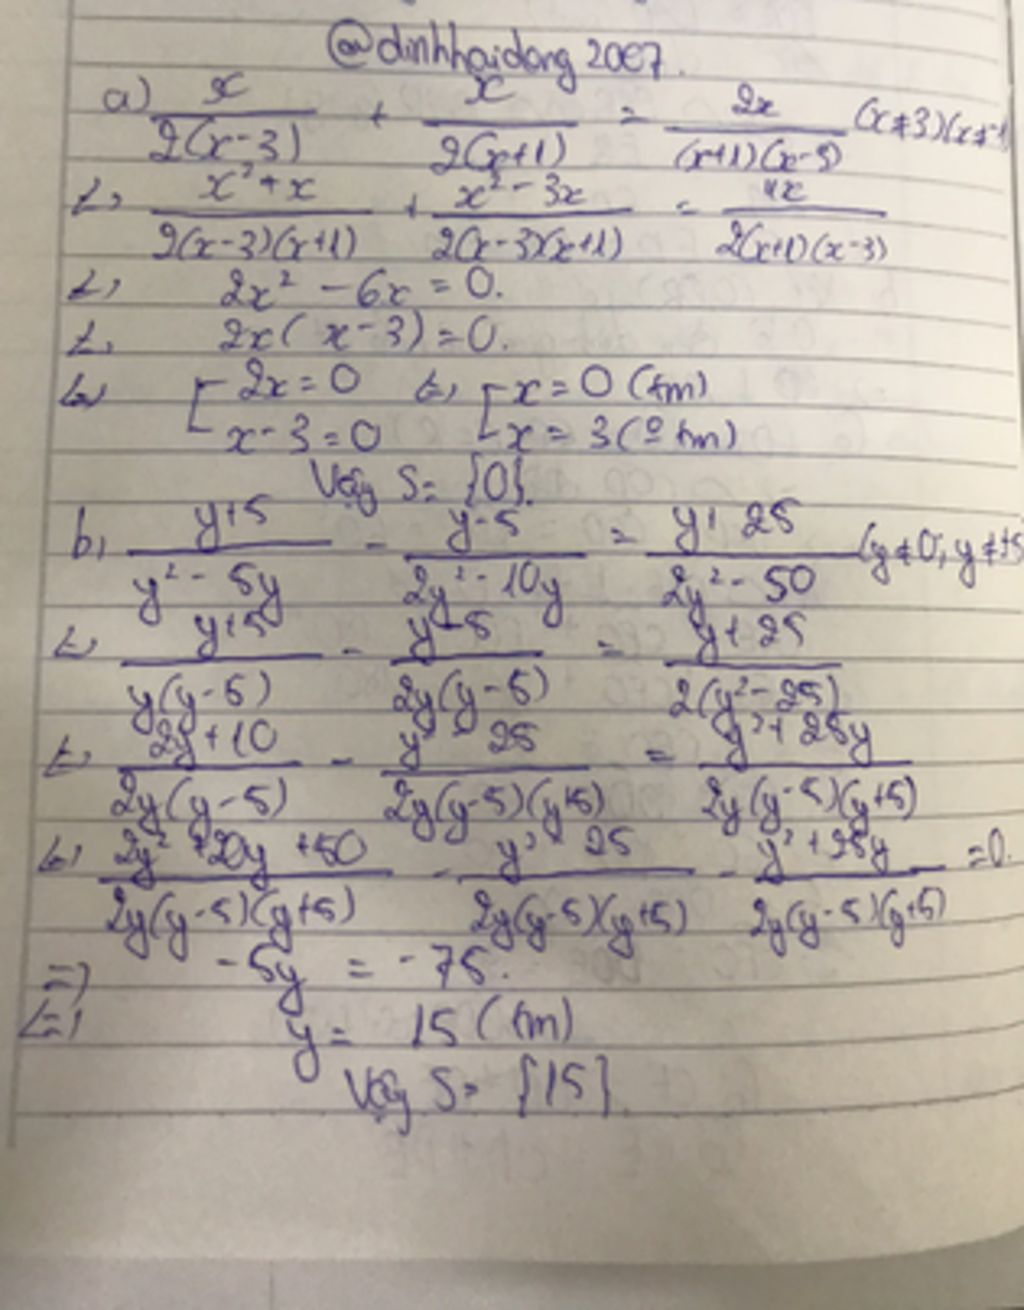 @dinhhaidang2007.
a) x/2(x-3) + x/2(x+1) = 2x/(x+1)(x-3) (x≠3)(x≠-1)
<=> x²+x/2(x-3)(x+1) + x²-3x/2(x-3)(x+1) = 4x/2(x+1)(x-3)
<=> 2x² - 6x = 0.
<=> 2x(x-3) = 0.
<=> [2x = 0 <=> [x = 0 (tm)
x-3 = 0 x = 3 (º tm)
Vậy S = {0}.
b, y+5/y²-5y - y-5/2y²-10y = y+25/2y²-50 (y≠0; y≠±5
<=> y+5/y(y-5) - y-5/2y(y-5) = y+25/2(y²-25)
<=> 2y+10/2y(y-5) - y² 25/2y(y-5)(y+5) = y²+25y/2y(y-5)(y+5)
<=> 2y²+20y+50/2y(y-5)(y+5) - y² 25/2y(y-5)(y+5) - y²+25y/2y(y-5)(y+5) = 0.
=> -5y = -75.
<=> y = 15 (tm)
Vậy S = {15}